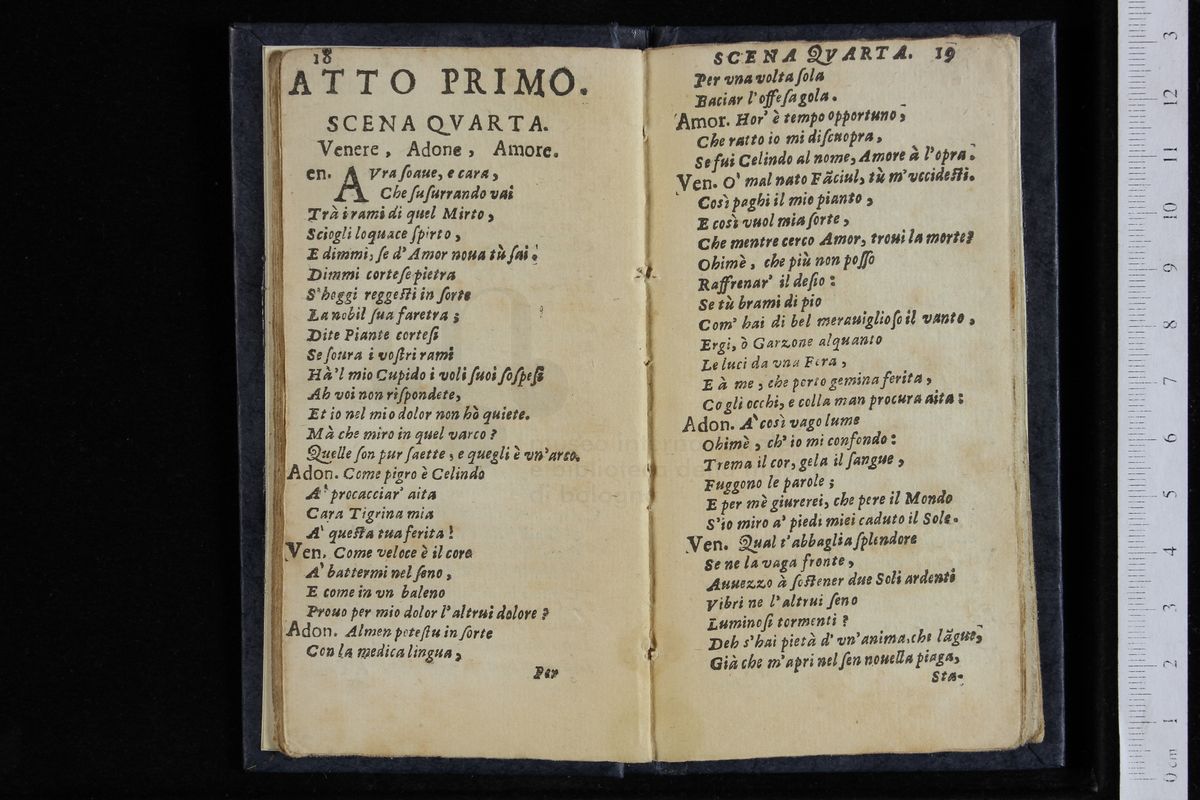 18
ATTO PRIMO.
SCENA QVARTA.
Venere, Adone, Amore.
en. AVra ſoaue, e cara,
Che ſuſurrando vai
Trà i rami di quel Mirto,
Sciogli loquace ſpirto,
E dimmi, ſe d'Amor noua tù ſai:
Dimmi corteſe pietra
S'hoggi reggeſti in ſorte
La nobil ſua faretra;
Dite Piante corteſi
Se ſoura i voſtri rami
Hà'l mio Cupido i voli ſuoi ſoſpeſi
Ah voi non riſpondete,
Et io nel mio dolor non hò quiete.
Mà che miro in quel varco?
Quelle ſon pur ſaette, e quegli è vn'arco.
Adon. Come pigro è Celindo
A' procacciar' aita
Cara Tigrina mia
A' queſta tua ferita!
Ven. Come veloce è il core
A' battermi nel ſeno,
E come in vn baleno
Prouo per mio dolor l'altrui dolore?
Adon. Almen poteſtu in ſorte
Con la medica lingua,
Per
SCENA QVARTA. 19
Per vna volta ſola
Baciar l'offeſa gola.
Amor. Hor' è tempo opportuno,
Che ratto io mi diſcuopra,
Se fui Celindo al nome, Amore à l'opra.
Ven. O' mal nato Fāciul, tù m'vccideſti.
Così paghi il mio pianto,
E così vuol mia ſorte,
Che mentre cerco Amor, troui la morte?
Ohimè, che più non poſſo
Raffrenar' il deſio:
Se tù brami di pio
Com' hai di bel merauiglioſo il vanto,
Ergi, ò Garzone alquanto
Le luci da vna Fera,
E à me, che porto gemina ferita,
Co gli occhi, e colla man procura aita:
Adon. A' così vago lume
Ohimè, ch'io mi confondo:
Trema il cor, gela il ſangue,
Fuggono le parole;
E per mè giurerei, che pere il Mondo
S'io miro a' piedi miei caduto il Sole.
Ven. Qual t'abbaglia ſplendore
Se ne la vaga fronte,
Auuezzo à ſoſtener due Soli ardenti
Vibri ne l'altrui ſeno
Luminoſi tormenti?
Deh s'hai pietà d'vn'anima, che lāgue,
Già che m'apri nel ſen nouella piaga,
Sta-